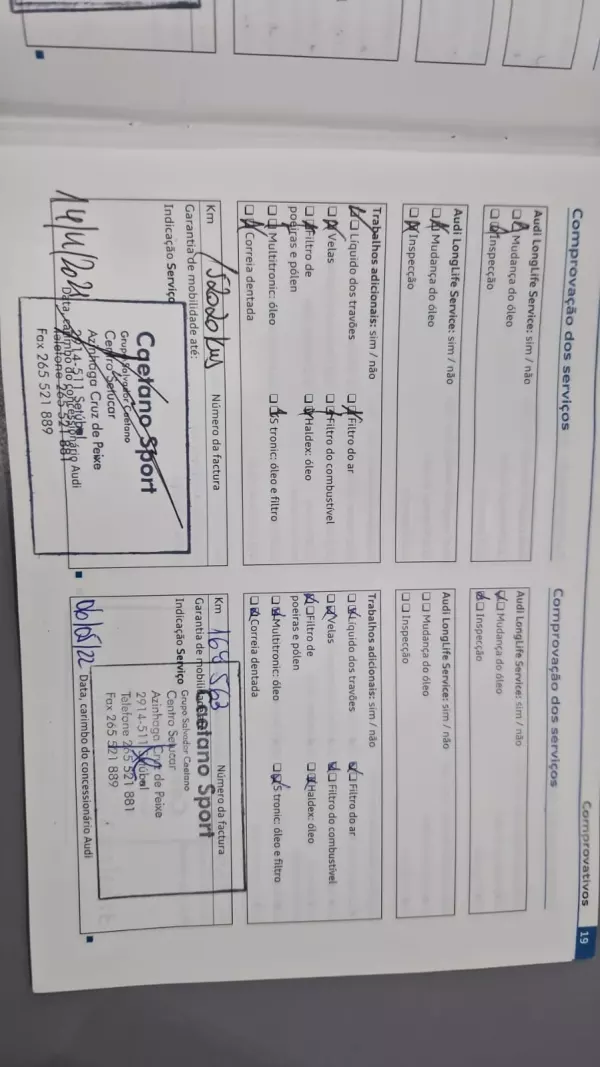 Comprovativos 19
Comprovação dos serviços
Audi LongLife Service: sim / não
Mudança do óleo
Inspecção
Audi LongLife Service: sim / não
Mudança do óleo
Inspecção
Trabalhos adicionais: sim / não
Líquido dos travões
Filtro do ar
Velas
Filtro do combustível
Filtro de
poeiras e pólen
Haldex: óleo
Multitronic: óleo
S tronic: óleo e filtro
Correia dentada
Km
Número da factura
Garantia de mobilidade até:
Indicação Serviço
Caetano Sport
Grupo Salvador Caetano
Centro Setucar
Azinhaga Cruz de Peixe
2914-511 Setúbal
Telefone 265 521 881
Fax 265 521 889
Data, carimbo do concessionário Audi
Comprovação dos serviços
Audi LongLife Service: sim / não
Mudança do óleo
Inspecção
Audi LongLife Service: sim / não
Mudança do óleo
Inspecção
Trabalhos adicionais: sim / não
Líquido dos travões
Filtro do ar
Velas
Filtro do combustível
Filtro de
poeiras e pólen
Haldex: óleo
Multitronic: óleo
S tronic: óleo e filtro
Correia dentada
Km 164 563
Número da factura
Garantia de
Indicação Serviço
Caetano Sport
Grupo Salvador Caetano
Centro Setucar
Azinhaga Cruz de Peixe
2914-511 Setúbal
Telefone 265 521 881
Fax 265 521 889
06/05/22
Data, carimbo do concessionário Audi